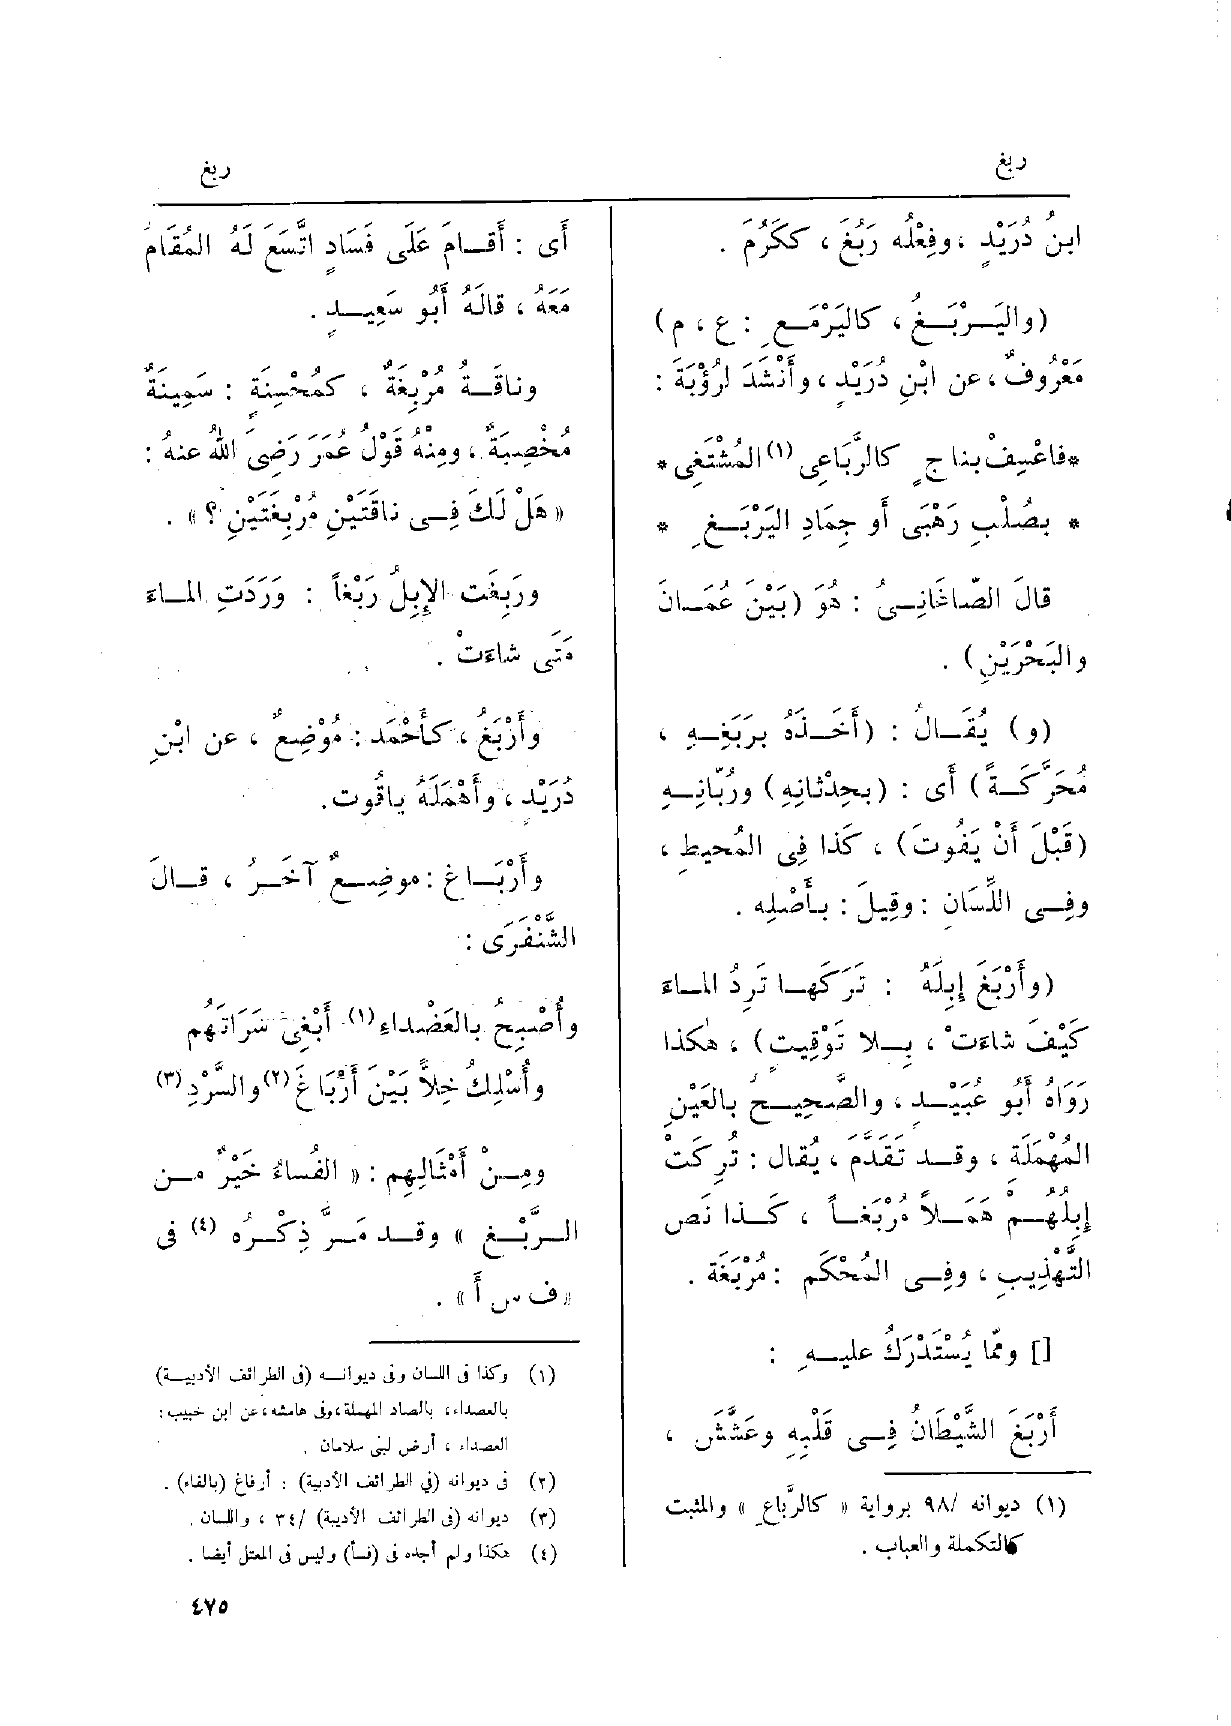 ربغ
ربغ
ابنُ دُرَيْدٍ ، وفِعْلُه رَبُغَ ، ككَرُمَ .
(واليَــرْبَــغُ ، كاليَرْمَــعِ : ع ، م)
مَعْرُوفٌ ، عن ابْنِ دُرَيْدٍ ، وأَنْشَدَ لرُؤْبَةَ :
*فاعْسِفْ بناجٍ كالرَّبَاعِى (١) المُشْتَغِى*
* بصُلْبِ رَهْبَى أو جِمَادِ اليَرْبَــغِ *
قالَ الصّاغَانِــىُّ : هُوَ (بَيْنَ عُمَــانَ
والبَحْرَيْنِ) .
(و) يُقَــالُ : (أَخَــذَهُ برَبَغِــهِ ،
مُحَرَّكَــةً) أى : (بحِدْثانِهِ) ورُبّانِــهِ
(قَبْلَ أَنْ يَفُوتَ) ، كَذا فِى المُحيطِ ،
وفِــى اللِّسَانِ : وقِيلَ : بأَصْلِه .
(وأَرْبَغَ إبِلَهُ : تَرَكَهــا تَرِدُ المــاءَ
كَيْفَ شاءَتْ ، بِــلا تَوْقِيتٍ) ، هٰكذا
رَوَاهُ أَبُو عُبَيْــدٍ ، والصَّحِيــحُ بالعَيْنِ
المُهْمَلَةِ ، وقــد تَقَدَّمَ ، يُقال : تُرِكَتْ
إبِلُهُــمْ هَمَــلاً مُرْبَغــاً ، كَــذا نَص
التَّهْذِيبِ ، وفِــى المُحْكَمِ : مُرْبَغَة .
[] وممّا يُسْتَدْرَكُ عليــهِ :
أَرْبَغَ الشَّيْطَانُ فِــى قَلْبِهِ وعَشَّشَ ،
(١) ديوانه /٩٨ برواية « كالرَّباعِ » والمثبت
كالتكملة والعباب .
أى : أَقــامَ عَلَى فَسَادٍ اتَّسَعَ لَــهُ المُقَامُ
مَعَهُ ، قالَهُ أَبُو سَعِيــدٍ .
وناقَــةٌ مُرْبِغَةٌ ، كمُحْسِنَةٍ : سَمِينَةٌ
مُخْصِبَةٌ ، ومِنْهُ قَوْلُ عُمَرَ رَضِىَ اللهُ عنهُ :
« هَلْ لَكَ فِــى ناقَتَيْنِ مُرْبِغَتَيْنِ ؟ » .
ورَبِغَت الإبِلُ رَبْغاً : وَرَدَتِ المــاءَ
مَتَى شاءَتْ .
وأَرْبَغُ ، كأَحْمَد : مُوْضِعٌ ، عن ابْنِ
دُرَيْدٍ ، وأَهْمَلَهُ ياقُوت .
وأَرْبَــاغ : موضِــعٌ آخَــرُ ، قــالَ
الشَّنْفَرَى :
وأُصْبِحُ بالعَضْداءِ (١) أَبْغِى سَرَاتَهُم
وأَسْلِكُ خِلاًّ بَيْنَ أَرْبَاغَ (٢) والسَّرْدِ (٣)
ومِــنْ أَمْثالِهِم : « الفُساءُ خَيْرٌ مــن
الــرَّبْــغِ » وقــد مَــرَّ ذِكْــرُه (٤) فى
« ف س أ » .
(١) وكذا فى اللسان وفى ديوانــه (فى الطرائف الأدبيــة)
بالعصداء، بالصاد المهملة، وفى هامشه، عن ابن حبيب:
العصداء ، أرض لبنى سلامان .
(٢) فى ديوانه (في الطرائف الأدبية) : أرفاغ (بالفاء) .
(٣) ديوانه (فى الطرائف الأدبية) /٣٤ ، واللسان .
(٤) هكذا ولم أجده فى (فسأ) وليس فى المعتل أيضا .
٤٧٥